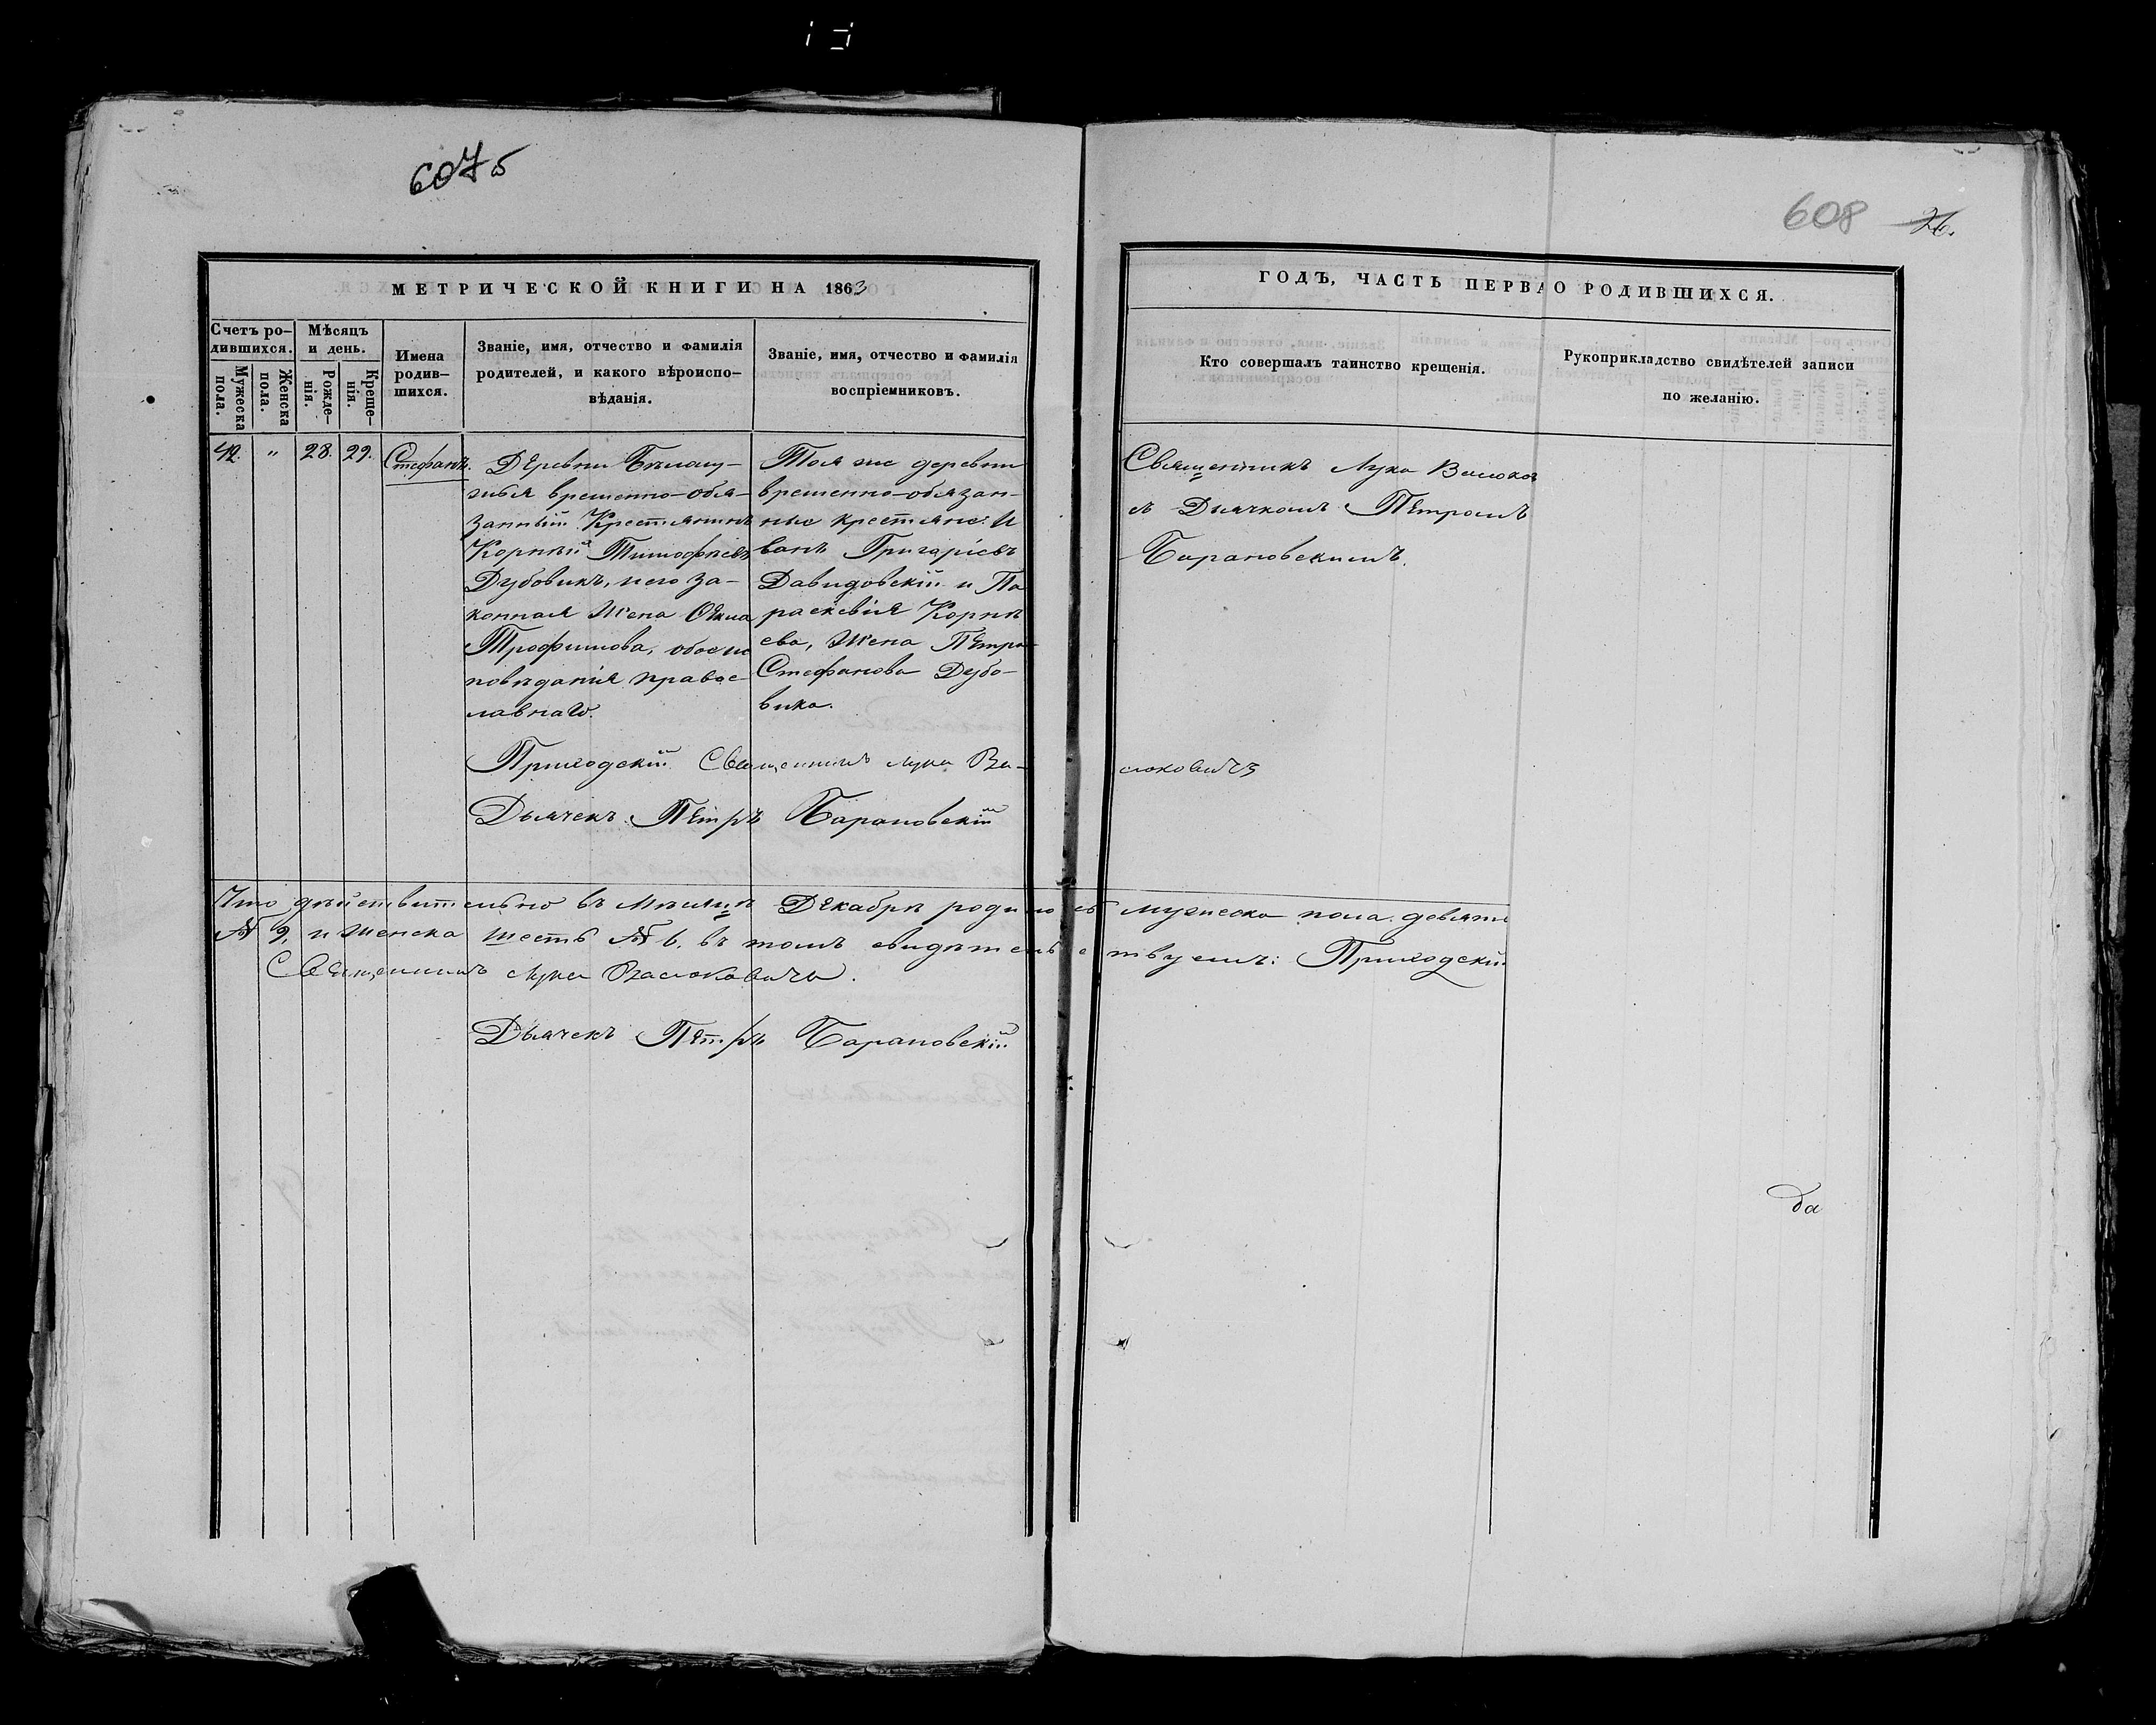 607 б
608 26.
МЕТРИЧЕСКОЙ КНИГИ НА 1863
ГОДЪ, ЧАСТЬ ПЕРВАО РОДИВШИХСЯ.
Счетъ ро-
дившихся.
Мужеска
пола.
Женска
пола.
Мѣсяцъ
и день.
Рожде-
нія.
Креще-
нія.
Имена
родив-
шихся.
Званіе, имя, отчество и фамилія
родителей, и какого вѣроиспо-
вѣданія.
Званіе, имя, отчество и фамилія
воспріемниковъ.
Кто совершалъ таинство крещенія.
Рукоприкладство свидѣтелей записи
по желанію.
42. " 28. 29. Стефанъ.
Деревни
временно-обя-
занный Крестянинъ
Корнѣй Тимофѣевъ
Дубовикъ, и его за-
конная Жена
Трофимова, обое ис
повѣданія правос-
лавнаго.
Тоя же деревни
временно-обязан-
ные крестяне: И
ванъ Григаріевъ
Давидовскій и Па
раскевія Корнѣ
ева, Жена Петра
Стефанова Дубо-
вика.
Священникъ Лука
съ Дьячкомъ Петромъ
Барановскимъ.
Приходскій Священникъ Лука Ва-
слюковичъ
Дьячекъ Петръ Барановскій
Что дѣйствительно въ Мѣсяцѣ Декабрѣ родилось мужеска пола девять
№ 9, и женска шесть № 6. въ томъ свидѣтельствуемъ: Приходскій
Священникъ Лука Васлюковичъ.
Дьячекъ Петръ Барановскій
да